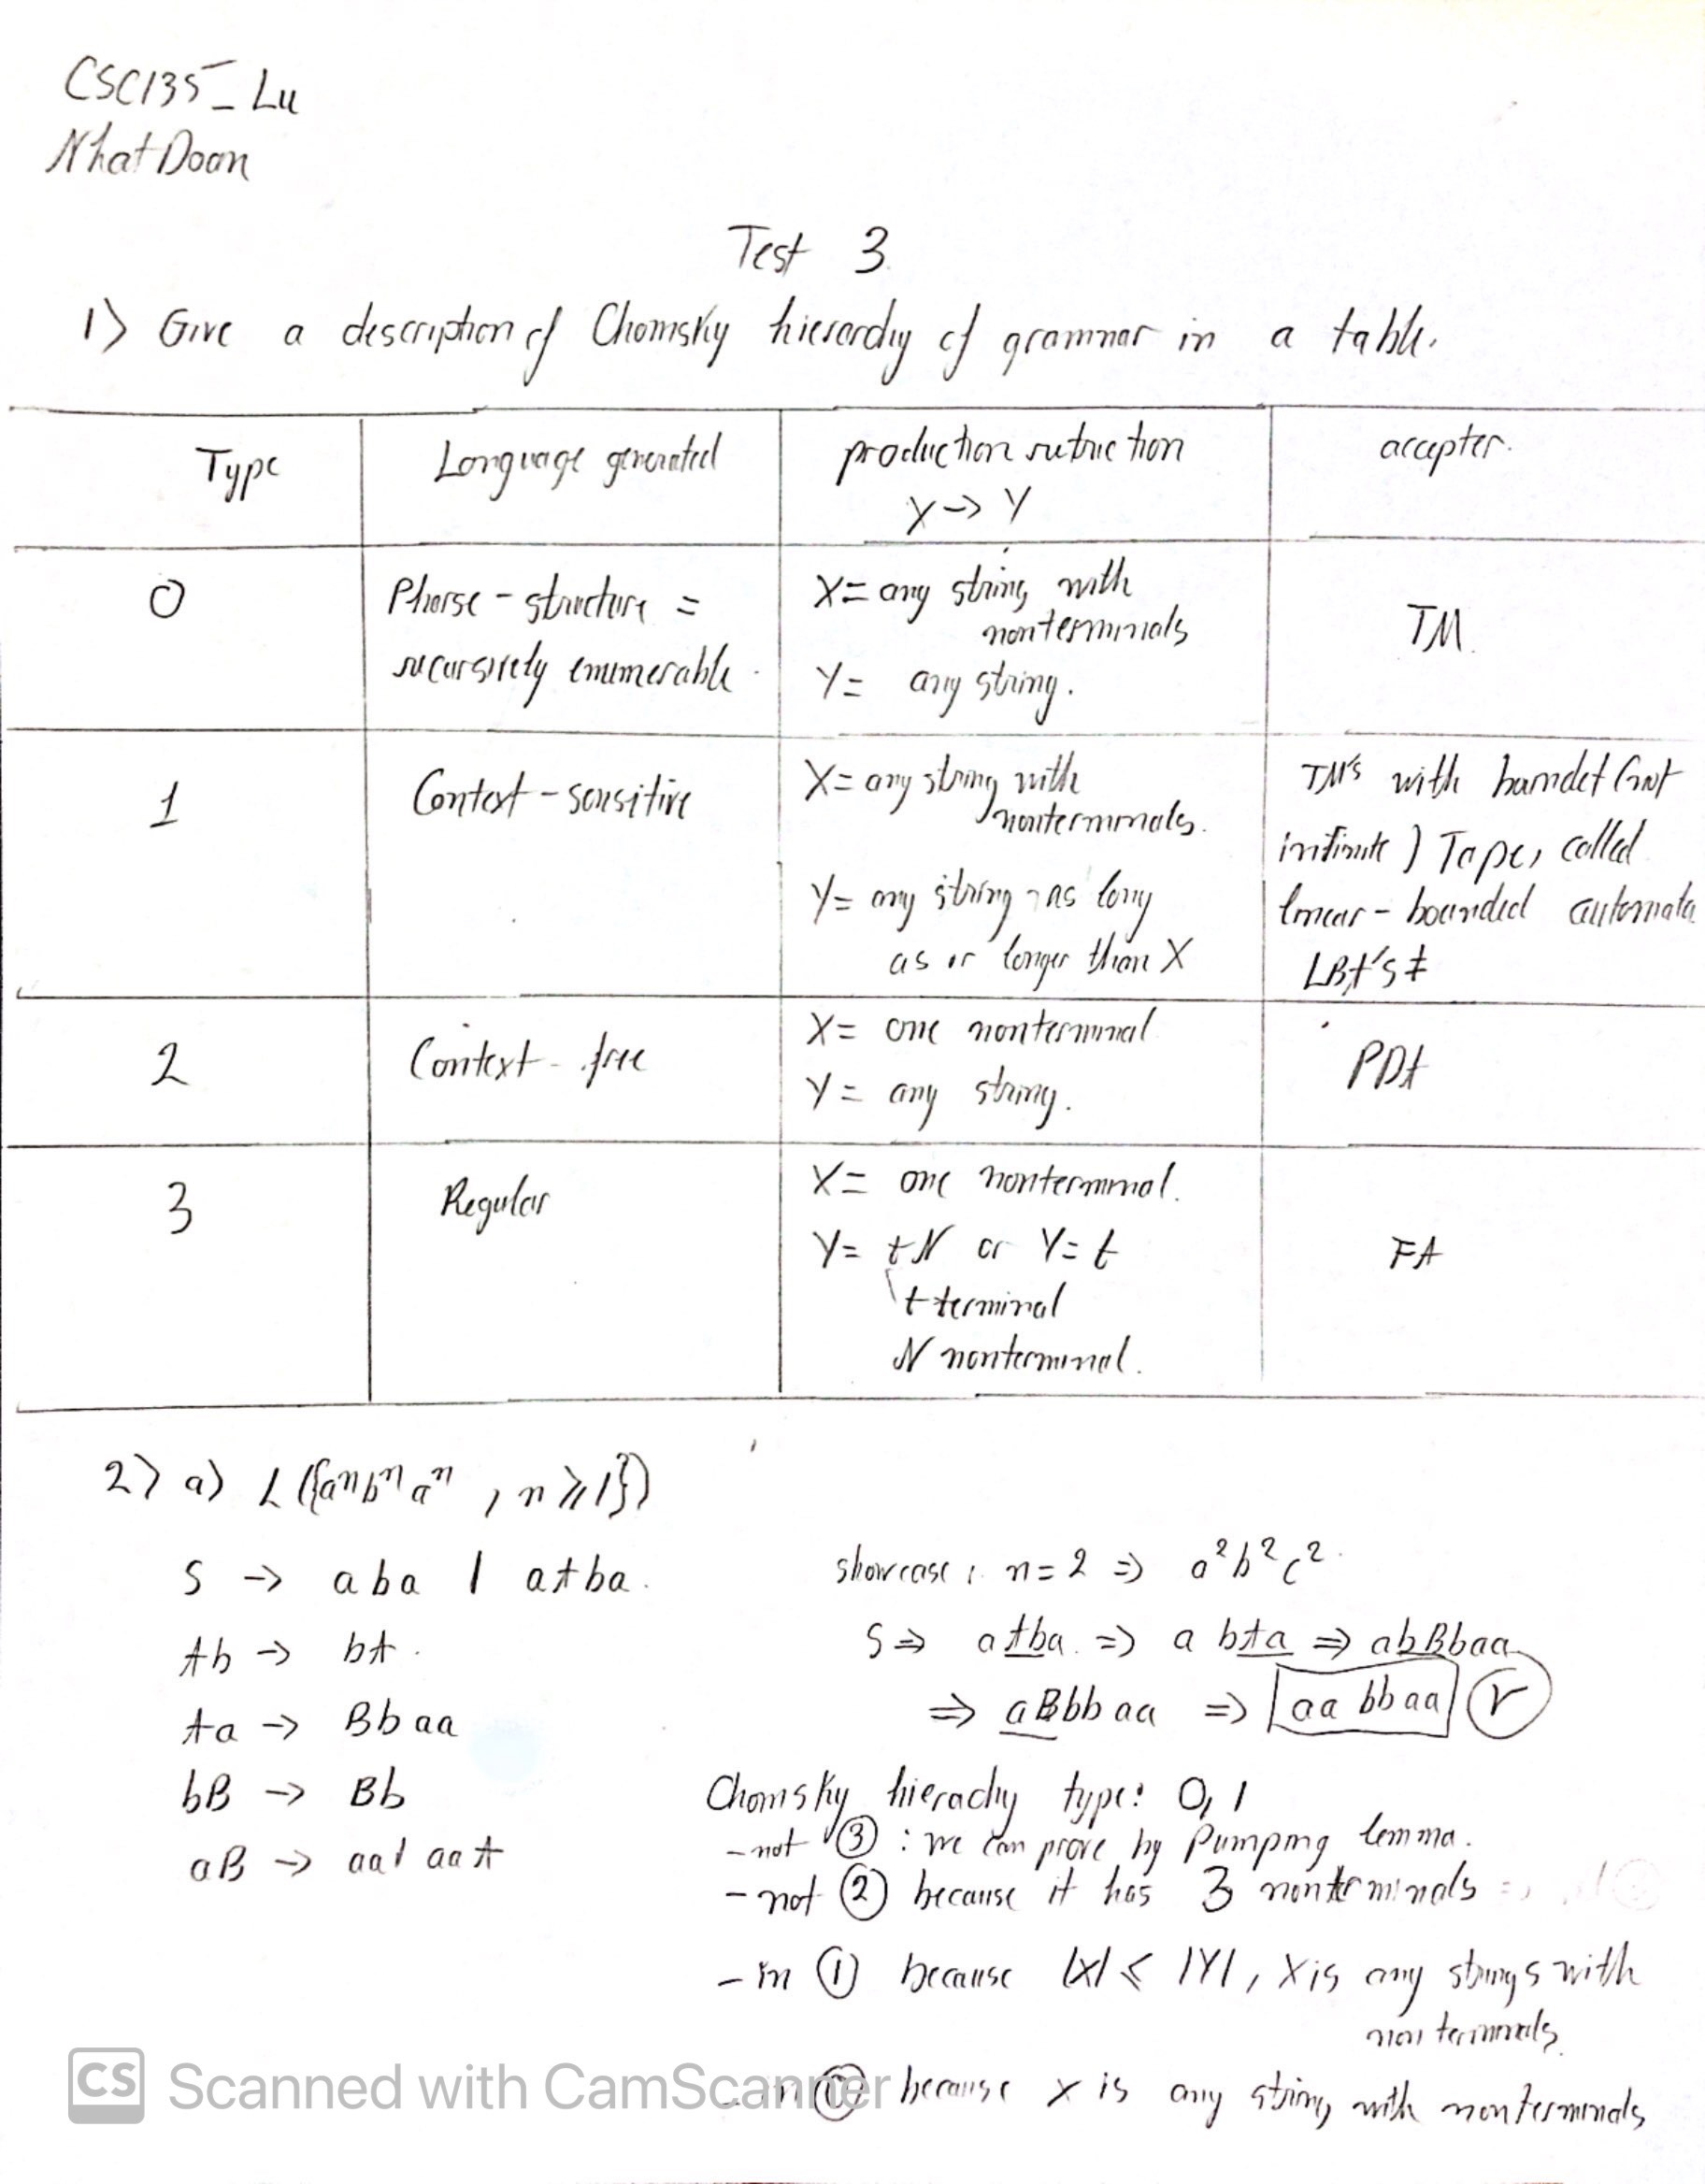 CSC135_Lu
Nhat Doan
Test 3
1) Give a description of Chomsky hierarchy of grammar in a table.
Type
Language generated
production restriction
X -> Y
accepter.
0
Phrase - structure =
recursively enumerable.
X = any string with
nonterminals
Y = any string.
TM.
1
Context - sensitive
X = any string with
nonterminals.
Y = any string as long
as or longer than X
TM's with (not
infinite) Tape, called
linear - bounded automata
LBA's
2
Context - free
X = one nonterminal
Y = any string.
PDA
3
Regular
X = one nonterminal.
Y = tN or Y = t
t terminal
N nonterminal.
FA
2) a) L({aⁿbⁿaⁿ, n ≥ 1})
S -> aba | aAba.
Ab -> bA.
Aa -> Bbaa
bB -> Bb
aB -> aa | aaA
showcase: n = 2 => a²b²c².
S => aAba. => a bAa => abBbaa
=> aBbbaa => aa bb aa
Chomsky hierachy type: 0, 1
- not ③ : we can prove by Pumping lemma.
- not ② because it has 3 nonterminals
- in ① because |X| ≤ |Y|, X is any strings with
non terminals.
- in ⓪ because X is any string with nonterminals
CS Scanned with CamScanner